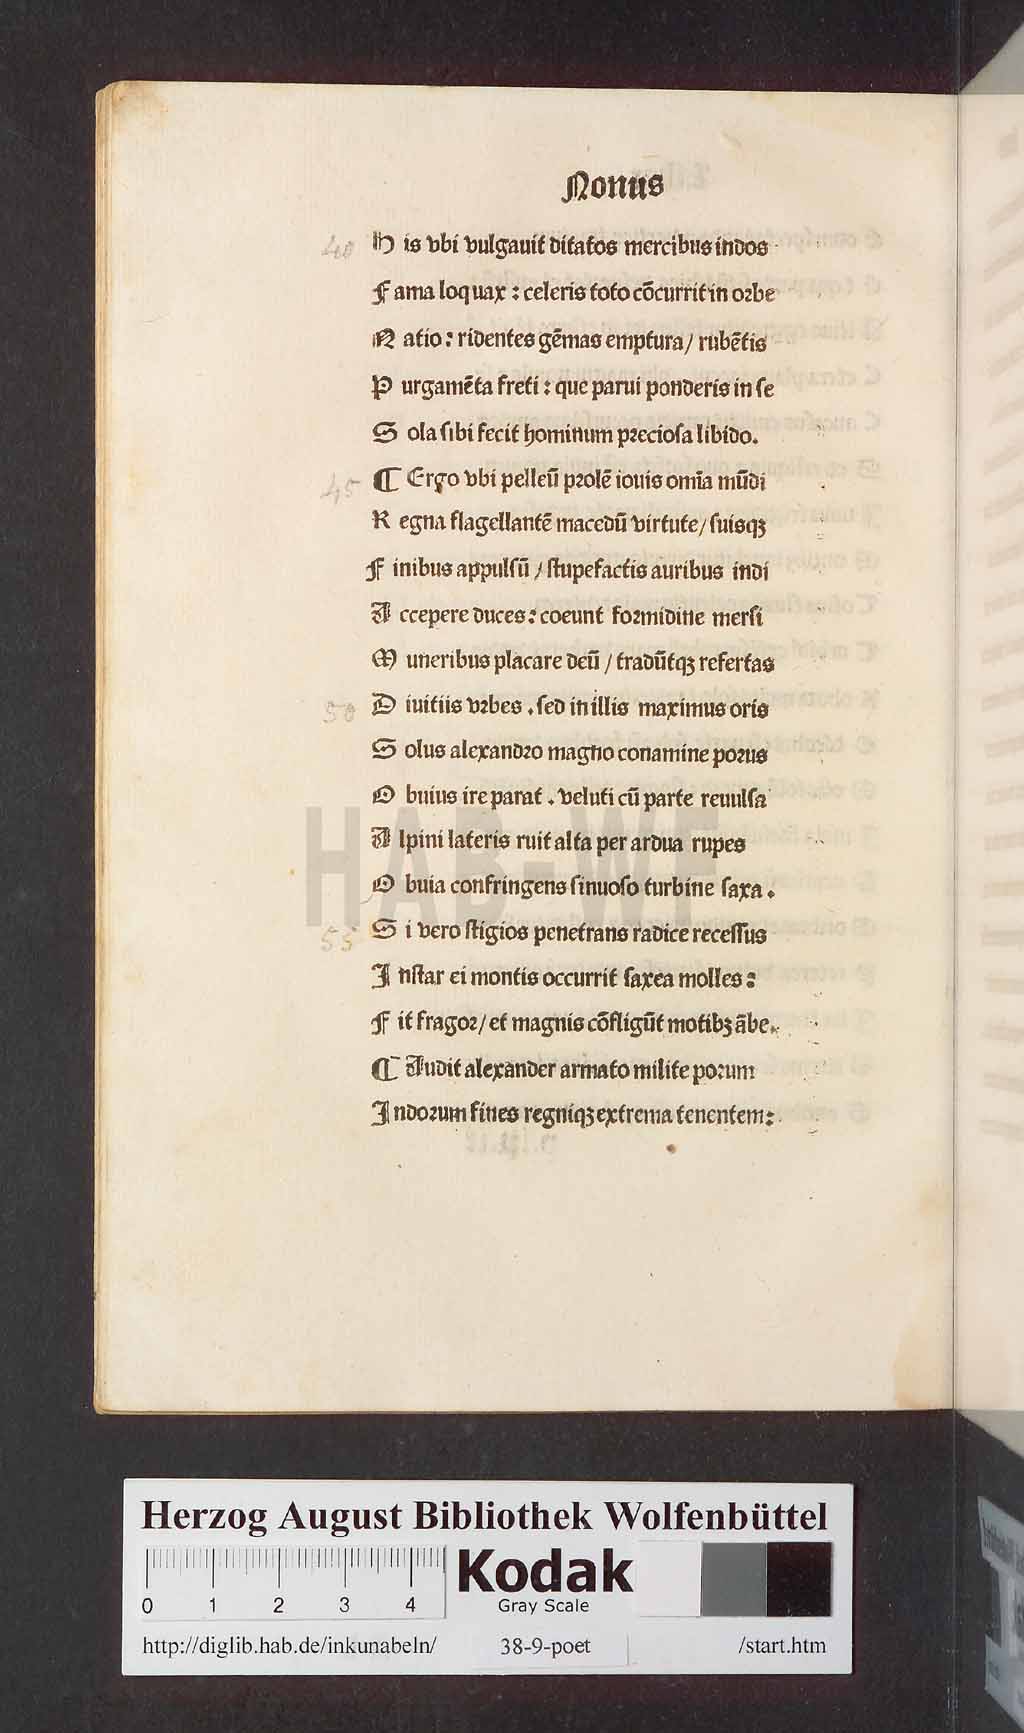 Nonus
40 H is vbi vulgauit ditatos mercibus indos
F ama loquax : celeris toto cōcurrit in orbe
N atio : ridentes gēmas emptura / rubētis
P urgamēta freti : que parui ponderis in se
S ola sibi fecit hominum preciosa libido.
45 ¶ Ergo vbi pelleū prolē iouis omīa mūdi
R egna flagellantē macedū virtute / suisqꝫ
F inibus appulsū / stupefactis auribus indi
A ccepere duces : coeunt formidine mersi
M uneribus placare deū / tradūtqꝫ refertas
50 D iuitiis vrbes . sed in illis maximus oris
S olus alexandro magno conamine porus
O buius ire parat . veluti cū parte reuulsa
A lpini lateris ruit alta per ardua rupes
O buia confringens sinuoso turbine saxa .
55 S i vero stigios penetrans radice recessus
I nstar ei montis occurrit saxea molles :
F it fragor / et magnis cōfligūt motibꝫ ābe.
¶ Audit alexander armato milite porum
I ndorum fines regniqꝫ extrema tenentem :
HAB-WF
Herzog August Bibliothek Wolfenbüttel
0 1 2 3 4
Kodak
Gray Scale
http://diglib.hab.de/inkunabeln/ 38-9-poet /start.htm